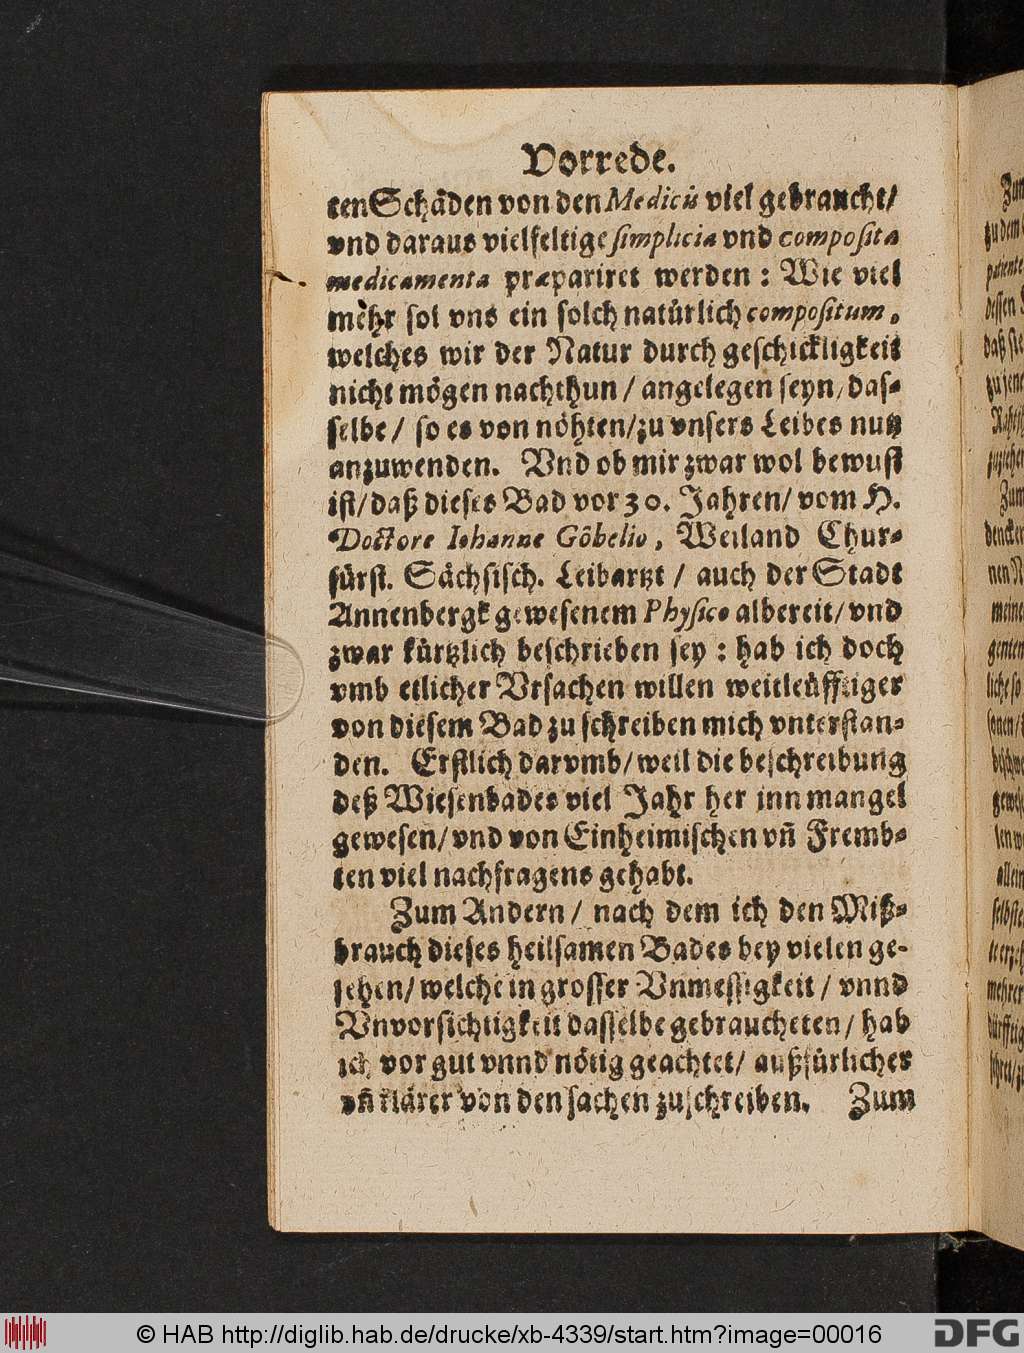 Vorrede.
ten Schäden von den Medicis viel gebraucht/
vnd daraus vielfeltige simplicia vnd composita
medicamenta præpariret werden : Wie viel
mehr sol vns ein solch natürlich compositum,
welches wir der Natur durch geschickligkeit
nicht mögen nachthun / angelegen seyn/ das-
selbe / so es von nöhten/zu vnsers Leibes nutz
anzuwenden. Vnd ob mir zwar wol bewust
ist/ daß dieses Bad vor 30. Jahren/ vom H.
Doctore Iohanne Göbelio, Weiland Chur-
fürst. Sächsisch. Leibartzt / auch der Stadt
Annenbergk gewesenem Physico albereit/ vnd
zwar kürtzlich beschrieben sey : hab ich doch
vmb etlicher Vrsachen willen weitleüfftiger
von diesem Bad zu schreiben mich vnterstan-
den. Erstlich darvmb/ weil die beschreibung
deß Wiesenbades viel Jahr her inn mangel
gewesen/ vnd von Einheimischen vñ Fremb-
ten viel nachfragens gehabt.
Zum Andern / nach dem ich den Miß-
brauch dieses heilsamen Bades bey vielen ge-
sehen/ welche in grosser Vnmessigkeit / vnnd
Vnvorsichtigkeit dasselbe gebraucheten / hab
ich vor gut vnnd nötig geachtet/ außfürlicher
vñ klärer von den sachen zu schreiben. Zum
© HAB http://diglib.hab.de/drucke/xb-4339/start.htm?image=00016
DFG